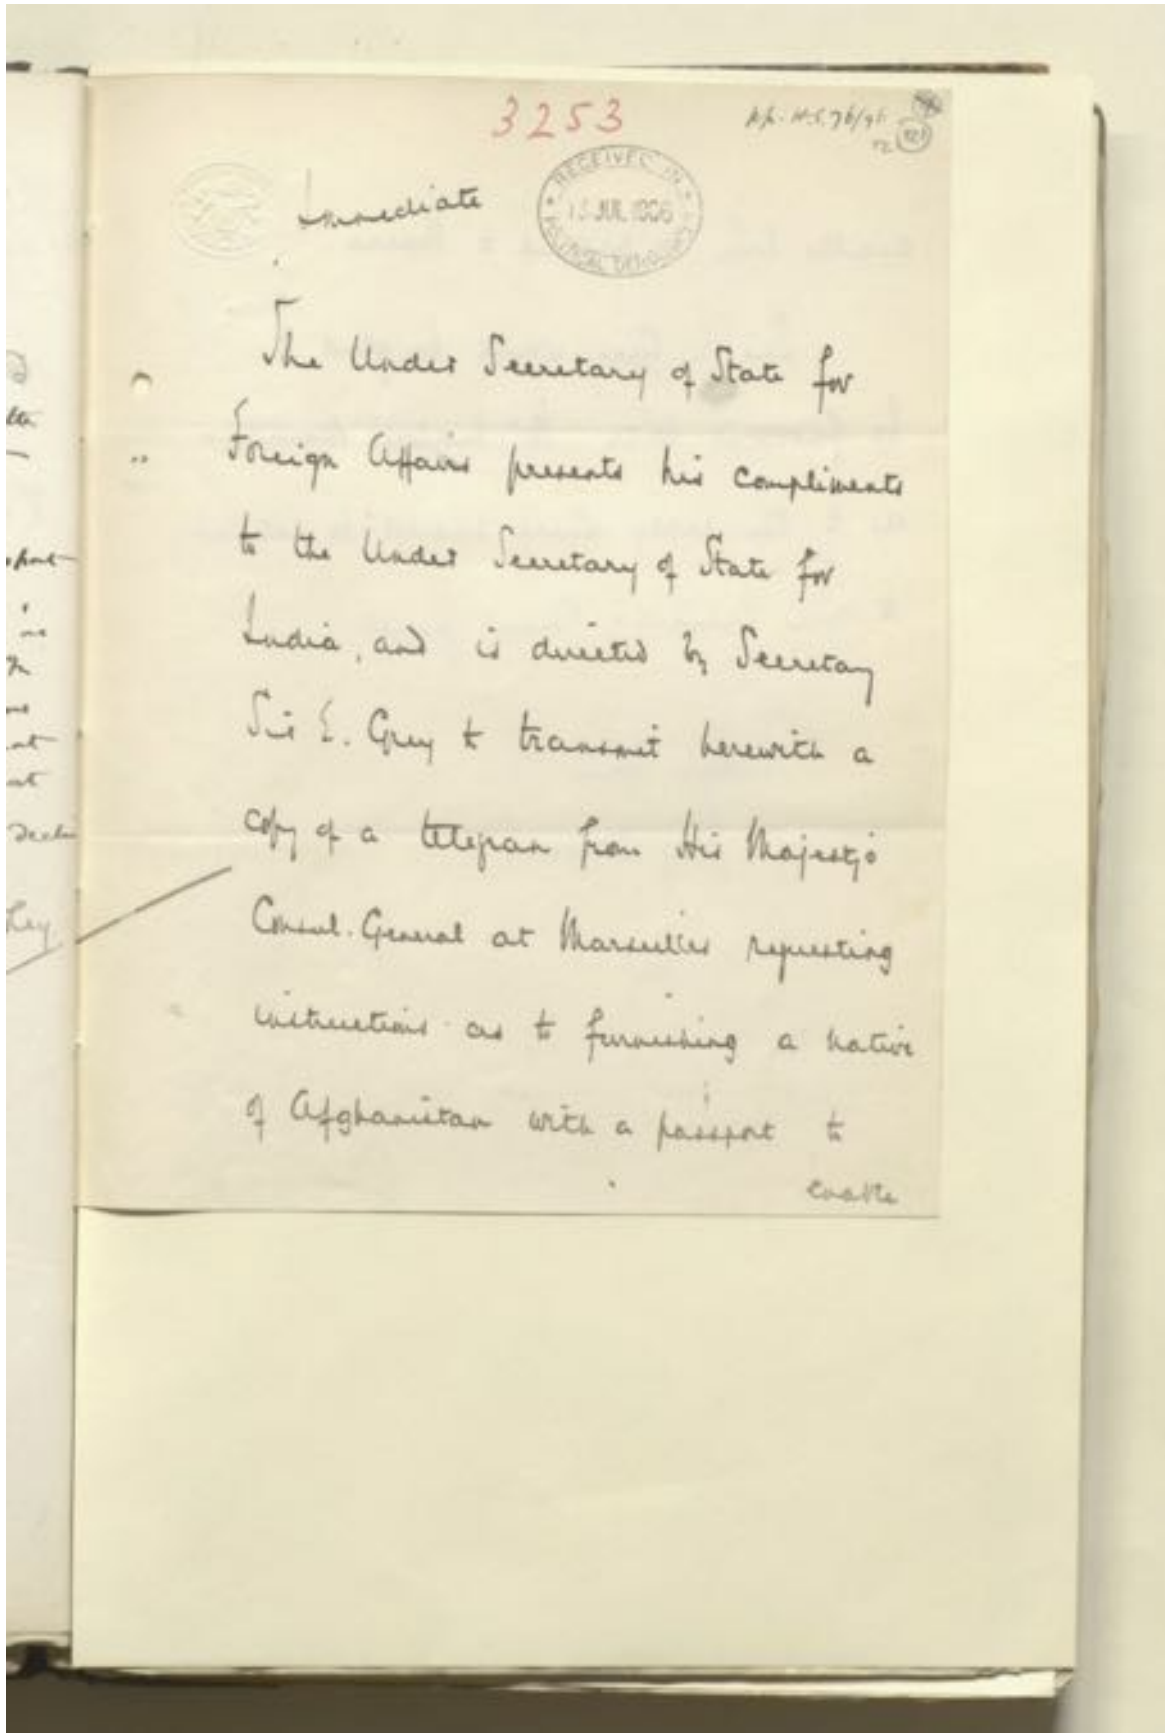 3253
Immediate
RECEIVED IN
JUL 1906
POLITICAL DEPARTMENT
The Under Secretary of State for
Foreign Affairs presents his compliments
to the Under Secretary of State for
India, and is directed by Secretary
Sir E. Grey to transmit herewith a
copy of a telegram from His Majesty's
Consul-General at Marseilles requesting
instructions as to furnishing a native
of Afghanistan with a passport to
enable